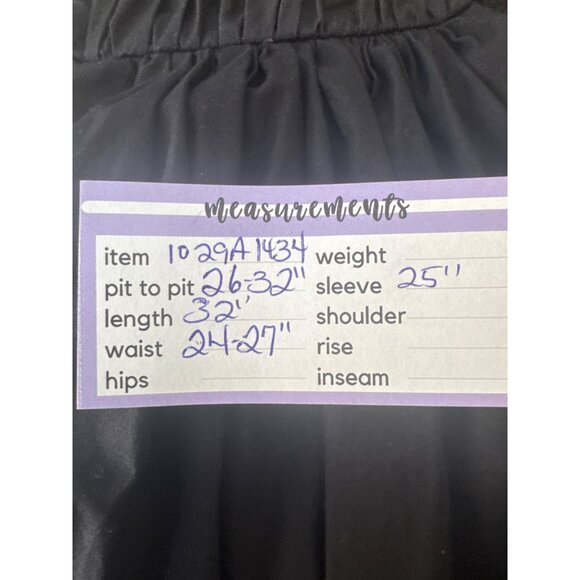 measurements
item 1029A1434 weight
pit to pit 26-32" sleeve 25"
length 32" shoulder
waist 24-27" rise
hips inseam